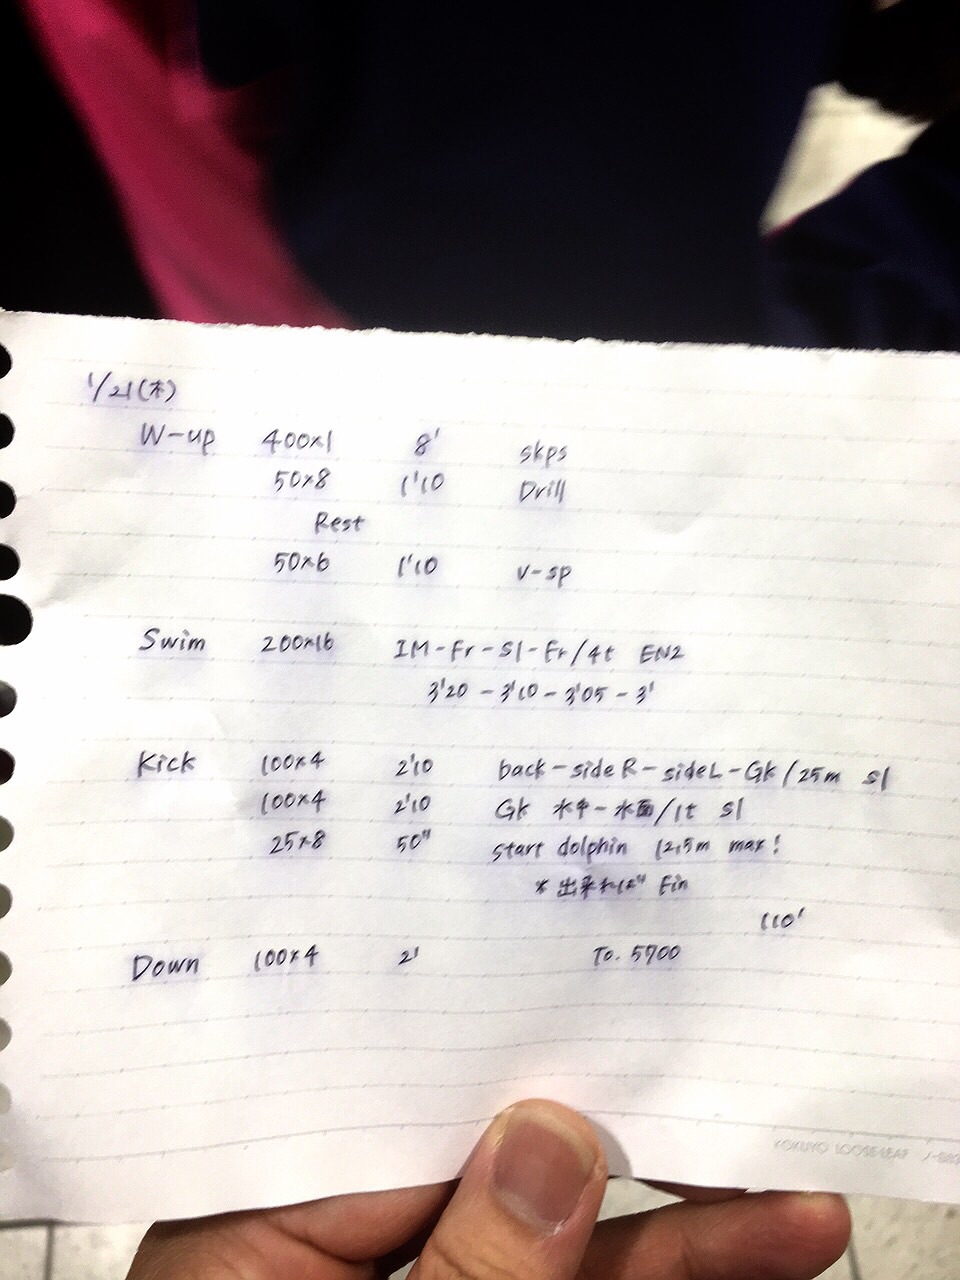 1/21(木)
W-up 400×1 8' skps
50×8 1'10 Drill
Rest
50×6 1'10 v-sp
Swim 200×16 IM-Fr-Sl-Fr/4t EN2
3'20 - 3'10 - 3'05 - 3'
Kick 100×4 2'10 back-sideR-sideL-Gk/25m Sl
100×4 2'10 Gk 水中-水面/1t Sl
25×8 50" start dolphin 12.5m max!
* 出来れば Fin
110'
Down 100×4 2' To. 5700
KOKUYO LOOSE-LEAF